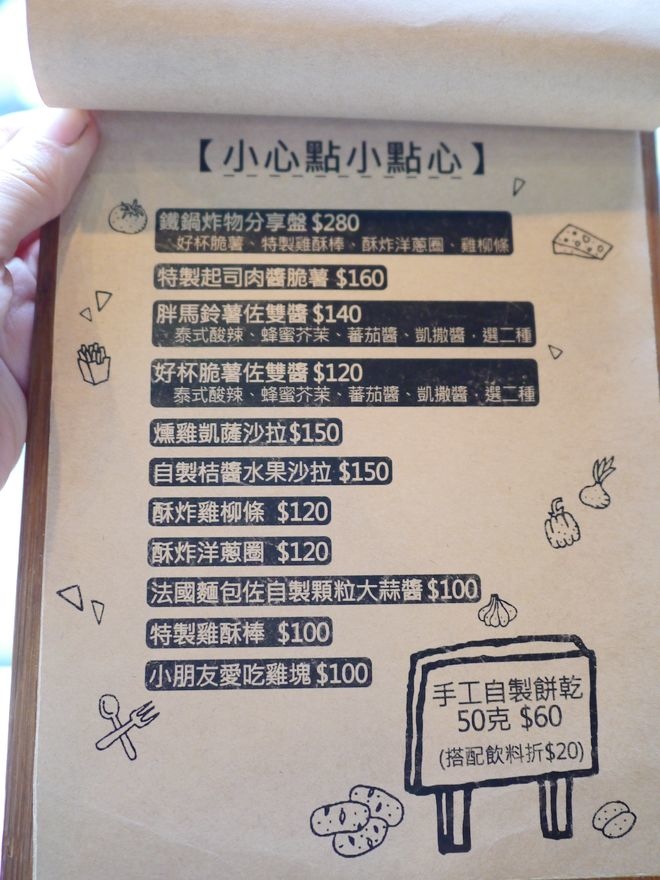 【小心點小點心】
鐵鍋炸物分享盤 $280
好杯脆薯、特製雞酥棒、酥炸洋蔥圈、雞柳條
特製起司肉醬脆薯 $160
胖馬鈴薯佐雙醬 $140
泰式酸辣、蜂蜜芥茉、蕃茄醬、凱撒醬，選二種
好杯脆薯佐雙醬 $120
泰式酸辣、蜂蜜芥茉、蕃茄醬、凱撒醬，選二種
燻雞凱薩沙拉$150
自製桔醬水果沙拉 $150
酥炸雞柳條 $120
酥炸洋蔥圈 $120
法國麵包佐自製顆粒大蒜醬 $100
特製雞酥棒 $100
小朋友愛吃雞塊 $100
手工自製餅乾
50克 $60
(搭配飲料折$20)